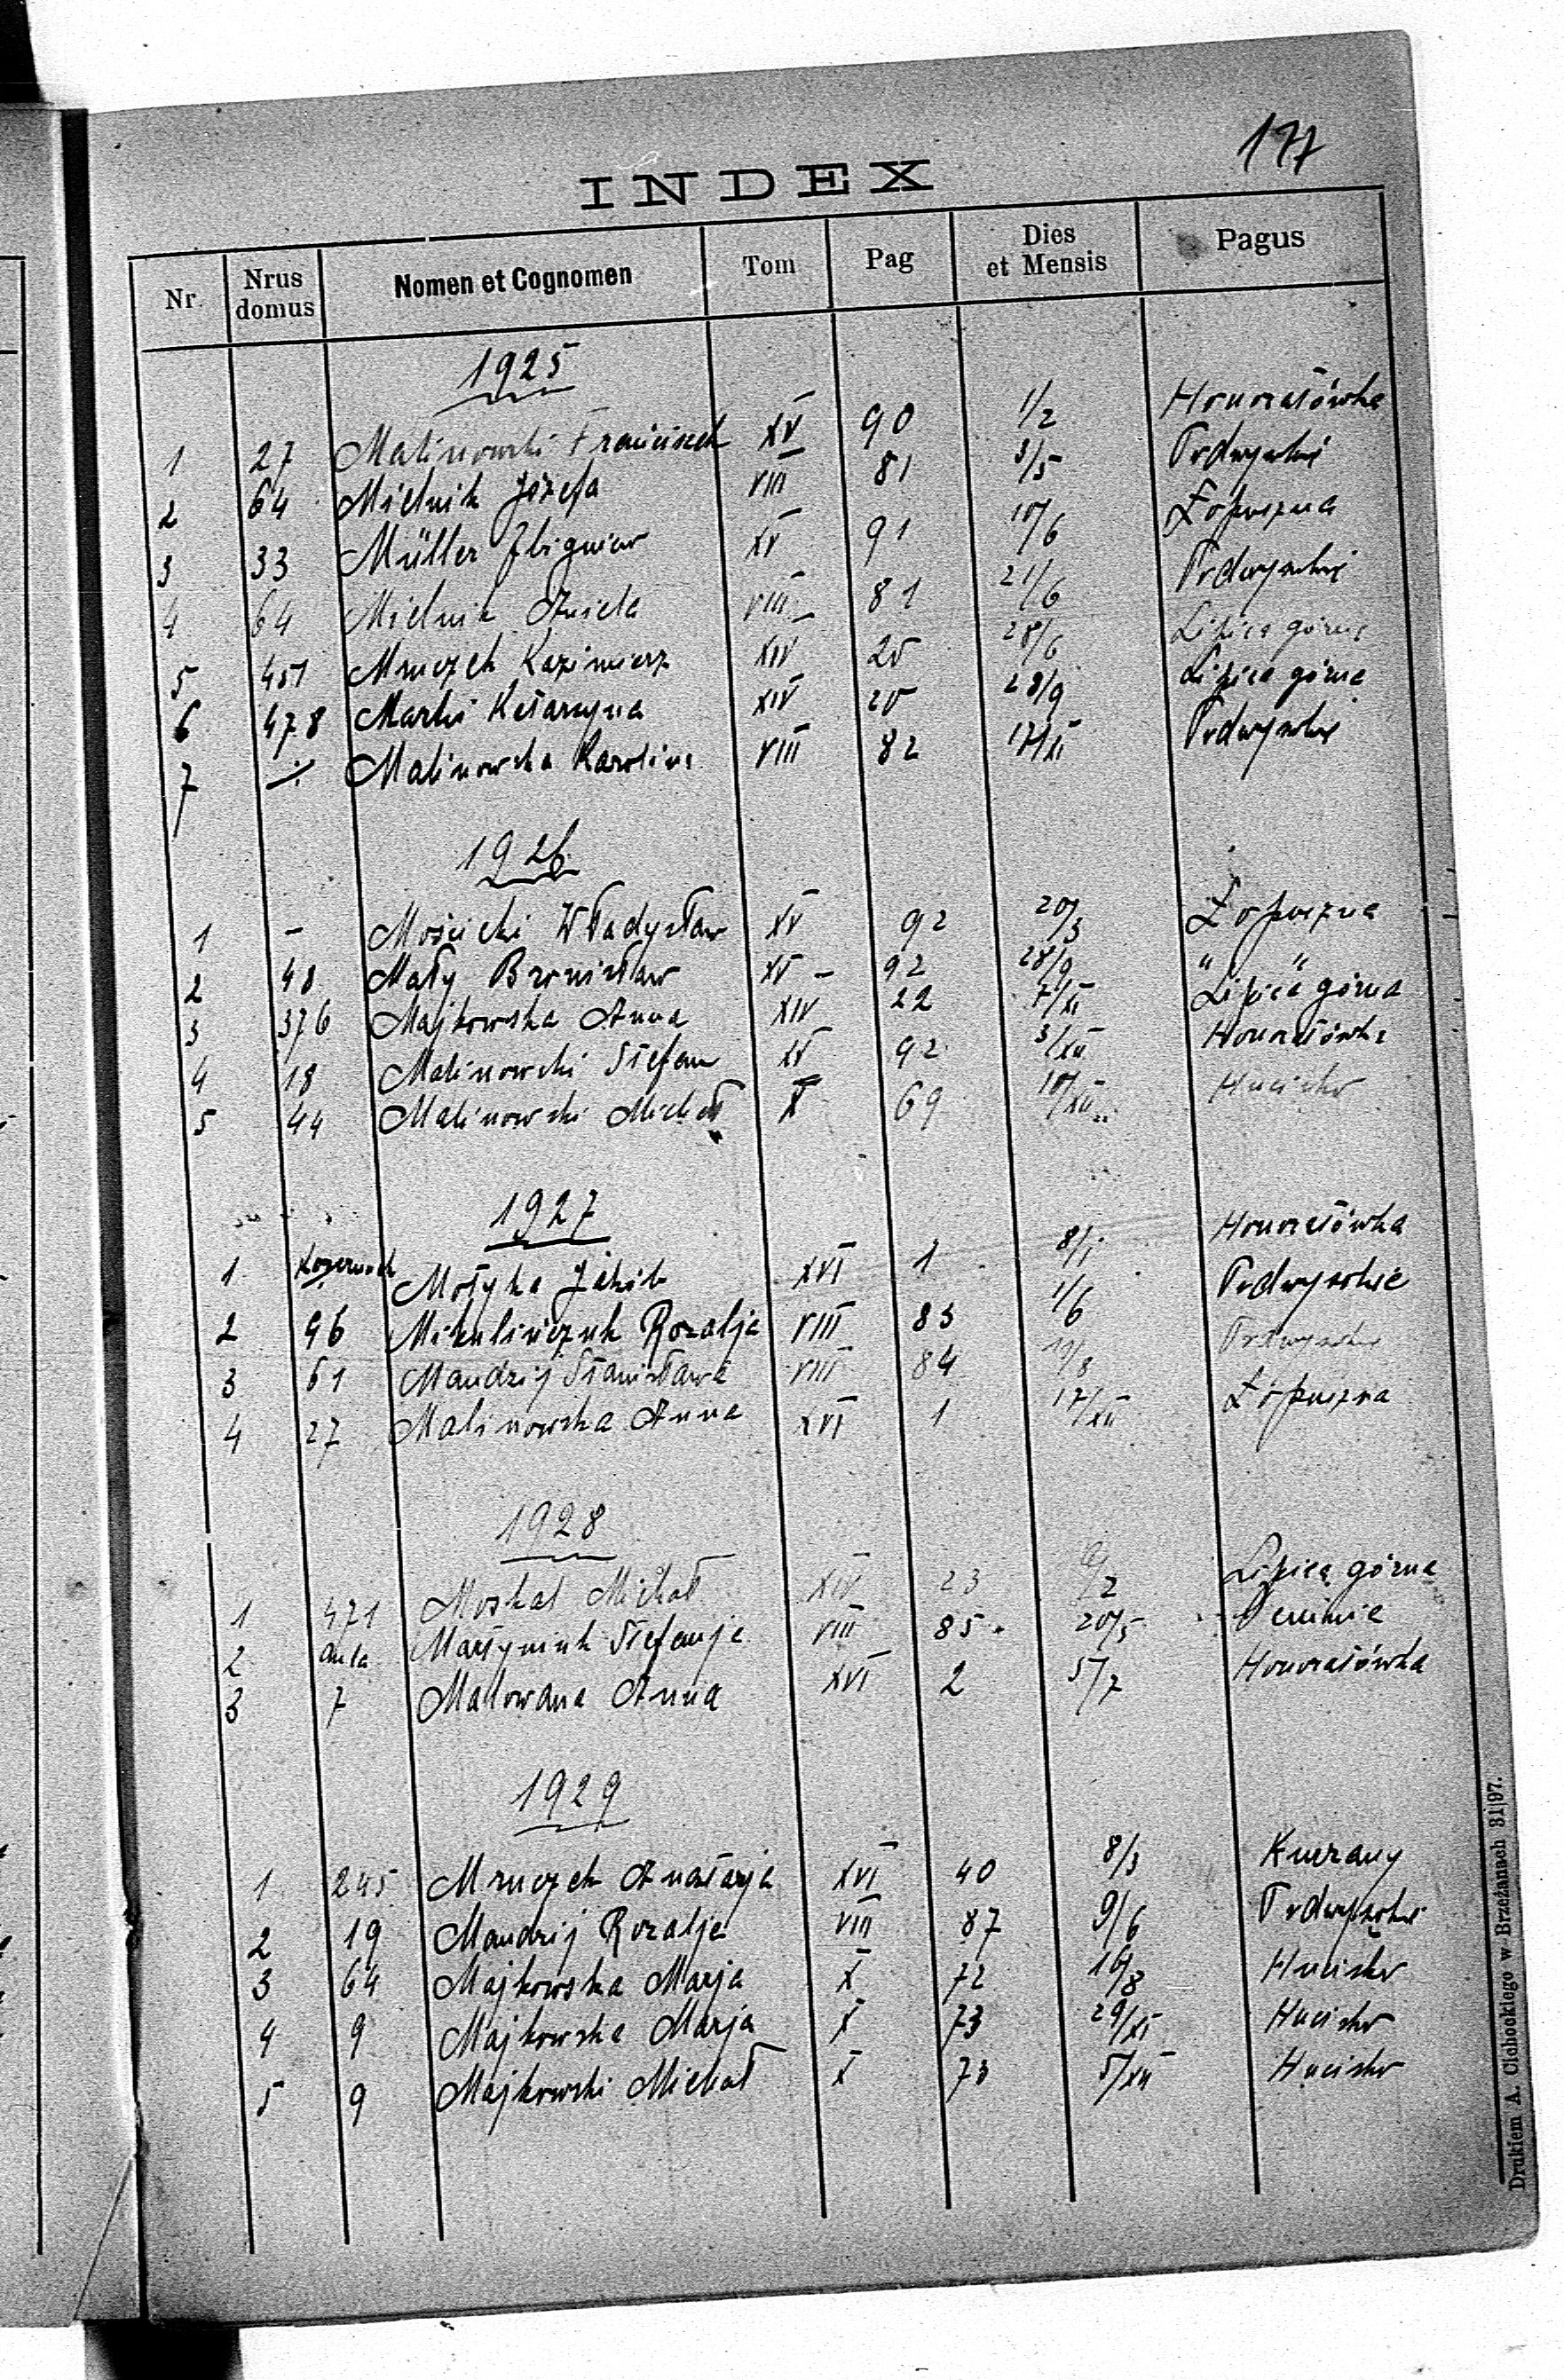 177
INDEX
Nr. Nrus domus Nomen et Cognomen Tom Pag Dies et Mensis Pagus
1925
1 27 Malinowski Franciszek XV 90 1/2 Honoratówka
2 64 Mielnik Józefa VIII 81 3/5 Podwysokie
3 33 Müller Zbigniew XV 91 10/6 Łopuszna
4 64 Mielnik Aniela VIII 81 21/6 Podwysokie
5 451 Mruczek Kazimierz XIV 20 28/6 Lipica górna
6 478 Marki Katarzyna XIV 20 28/9 Lipica górna
7 Malinowska Karolina VIII 82 17/XI Podwysokie
1926
1 – Mościcki Władysław XV 92 20/3 Łopuszna
2 48 Mały Bronisław XV – 92 28/9 " "
3 376 Majkowska Anna XIV 22 7/XI Lipica górna
4 18 Malinowski Stefan XV 92 3/XII Honoratówka
5 44 Malinowski Michał X 69 10/XII Hucisko
1927
1 Motyka Jakób XVI 1 8/I Honoratówka
2 96 Mikulińczuk Rozalja VIII 83 1/6 Podwysokie
3 61 Mandzij Stanisława VIII 84 Podwysokie
4 27 Malinowska Anna XVI 1 17/XII Łopuszna
1928
1 471 Moskal Michał XIV 23 6/2 Lipica górna
2 Martyniuk Stefanja VIII 85 20/5
3 7 Malowana Anna XVI 2 5/7 Honoratówka
1929
1 245 Mruczek Anastazja XVI 40 8/3 Kurzany
2 19 Mandzij Rozalja VIII 87 9/6 Podwysokie
3 64 Majkowska Marja X 72 19/8 Hucisko
4 9 Majkowska Marja X 73 29/XI Hucisko
5 9 Majkowski Michał X 73 5/XII Hucisko
Drukiem A. Cichockiego w Brzeżanach 31|97.